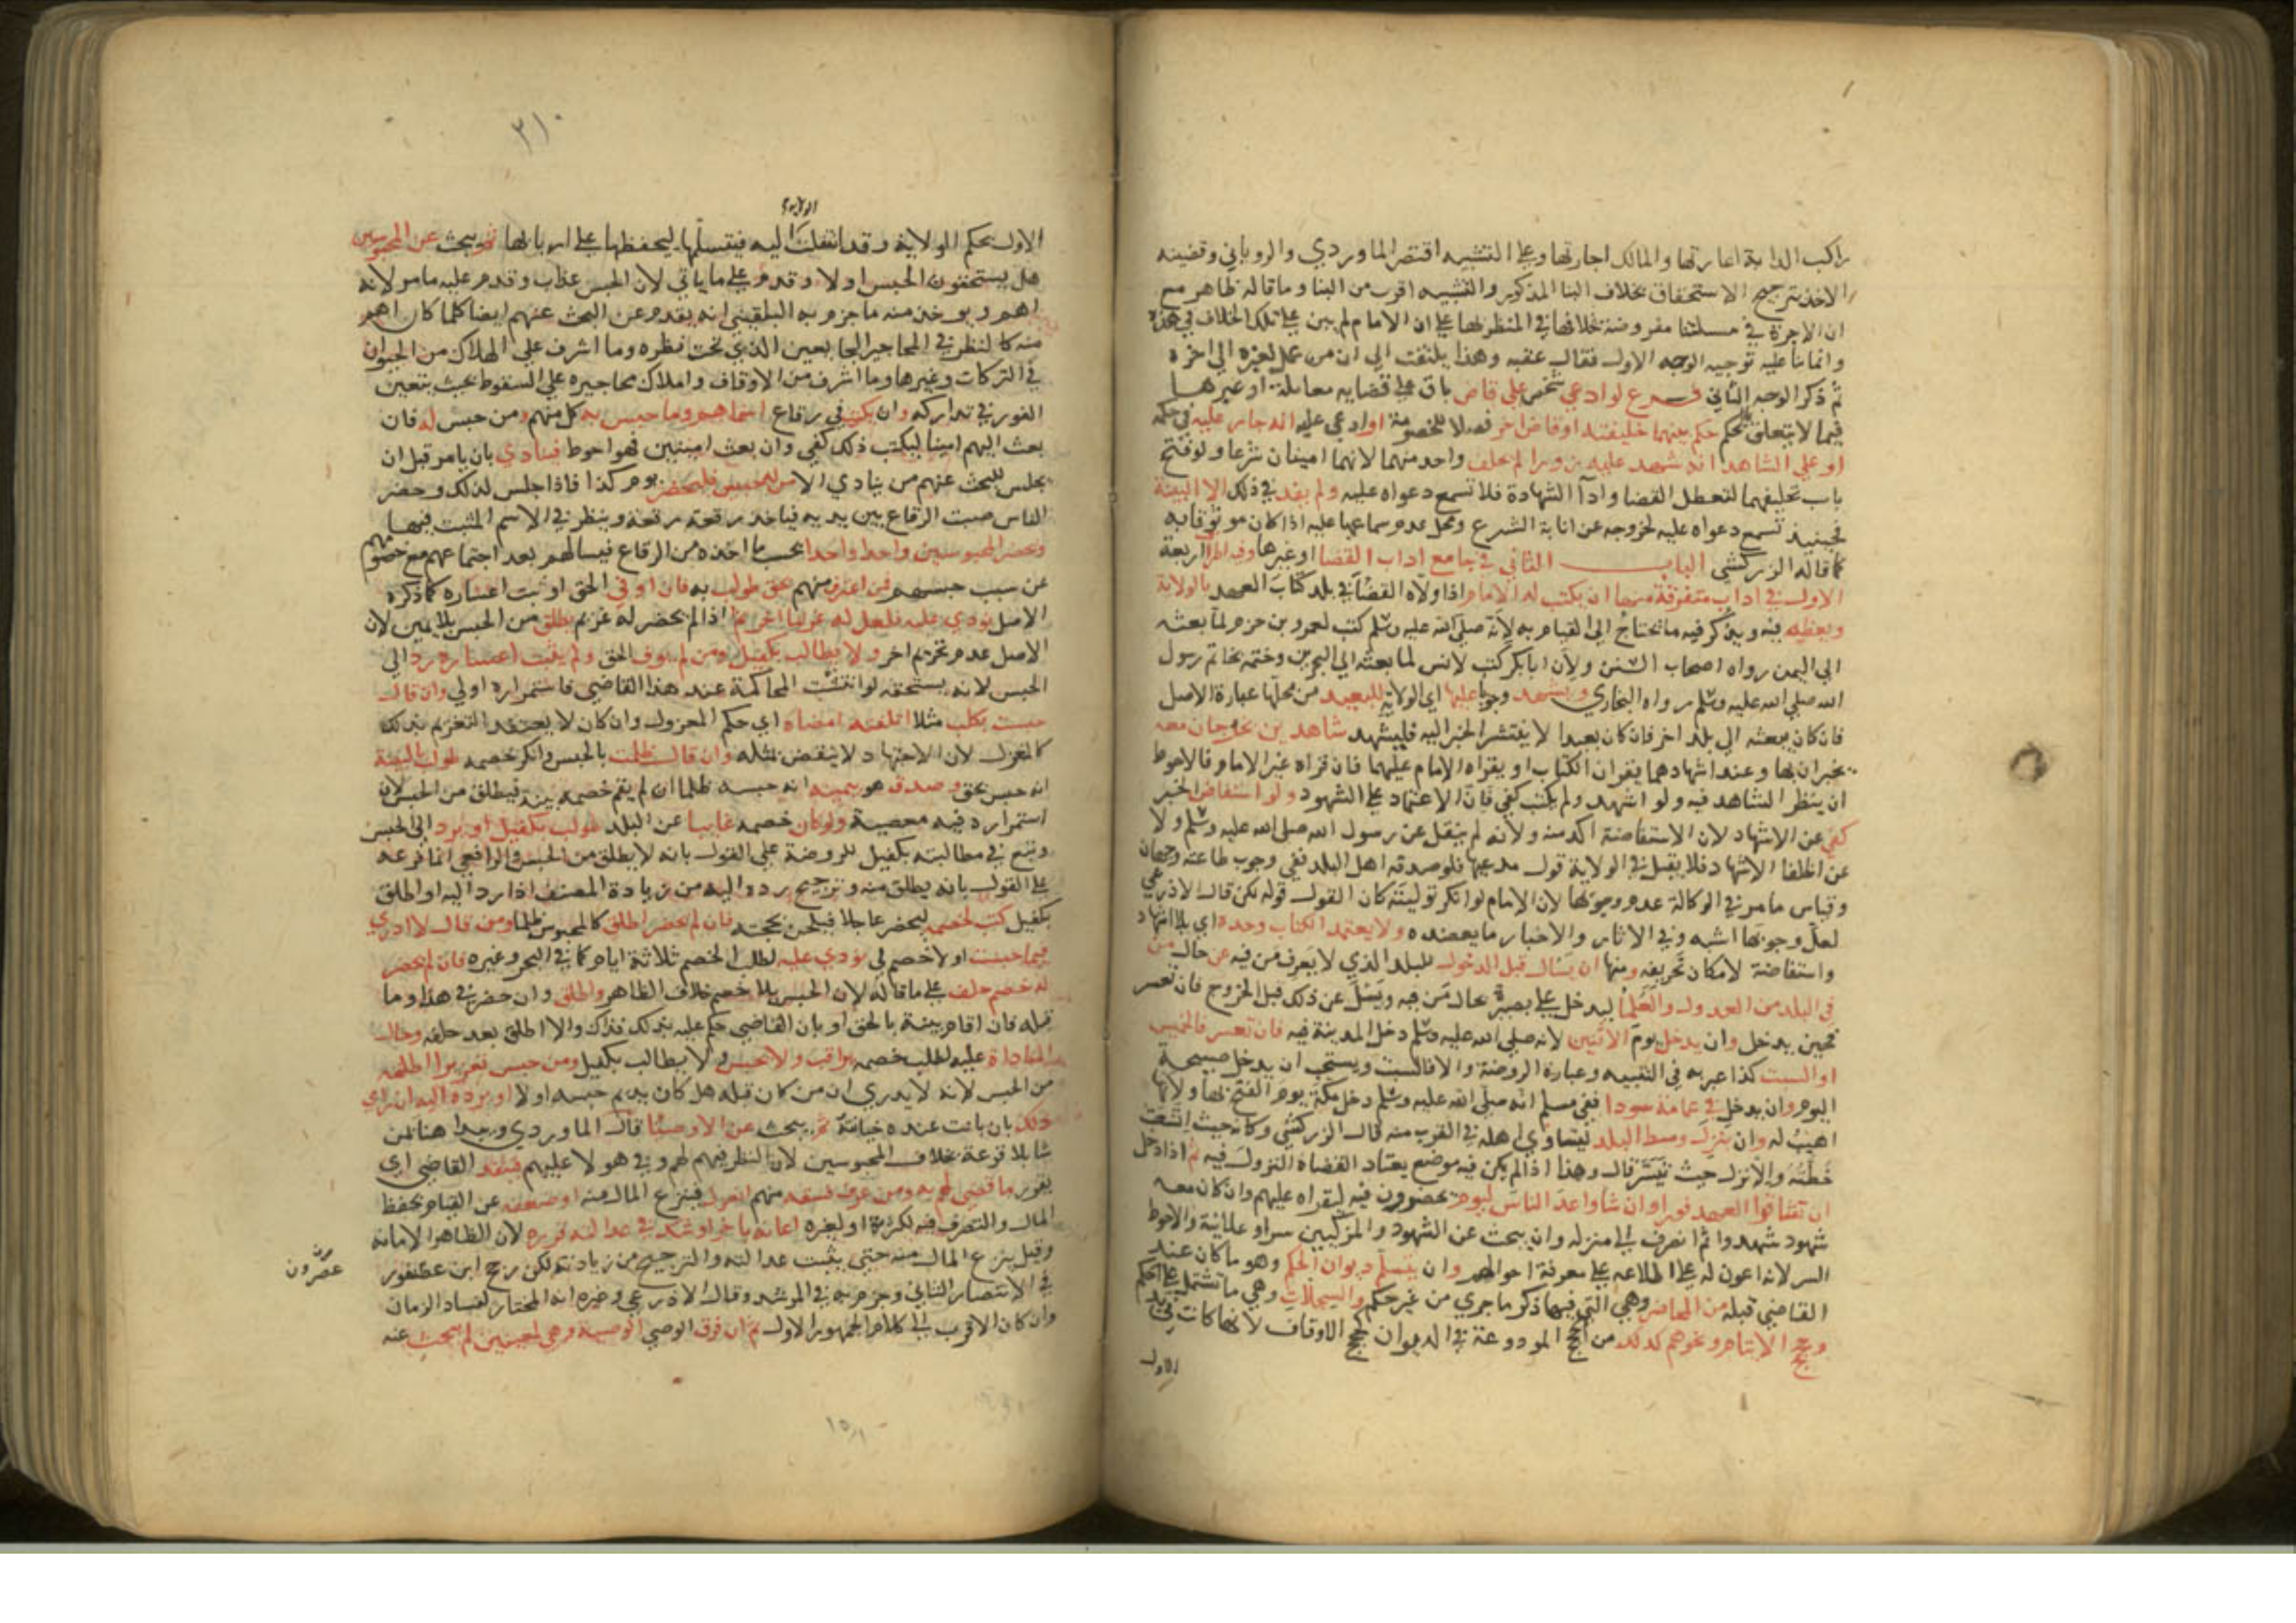 راكب الدابة اعارتها والمالك اجارتها وعلى التشبيه اقتصر الماوردي والروياني وقضيته
الاخذ بترجيح الاستحقاق بخلاف البنا المذكور والتشبيه اقرب من البنا وما قاله ظاهر مع
ان الاجرة في مسئلتنا مفروضة خلافها في المنظر بها على ان الامام لم يبن على تلك الخلاف في هذه
وانما بناء عليه توجيه الوجه الاول فقال عقبه وهذا يلتفت الي ان من عمل لغيره الي اخره
ثم ذكر الوجه الثاني فـرع لو ادعي شخص علي قاض باق على قضايه معاملة او غيرها
فيما لا يتعلق بالحكم حكم بينهما خليفته او قاض اخر فصلا للخصومة او ادعي عليه انه جار عليه في حكمه
او علي الشاهد انه شهد عليه زورا لم يحلف واحد منهما لانهما امينان شرعا ولو فتح
باب تحليفهما لتعطل القضا وادآ الشهادة فلا تسمع دعواه عليه ولم يفد في ذلك الا البينة
فحينيذ تسمع دعواه عليه لخروجه عن انابة الشرع ومحل عدم سماعها عليه اذا كان موثوقا به
كما قاله الزركشي الباب الثاني في جامع اداب القضا او غيرها وفيه اطراف اربعة
الاول في اداب متفرقة منها ان يكتب له الامام اذا ولاه القضآ في بلد كتاب العهد بالولاية
ويعظه فيه ويذكر فيه ما يحتاج الي القيام به لانه صلى الله عليه وسلم كتب لعمرو بن حزم لما بعثه
الي اليمن رواه اصحاب السنن ولان ابا بكر كتب لانس لما بعثه الي البحرين وختمه بخاتم رسول
الله صلى الله عليه وسلم رواه البخاري ويشهد وجوبا عليها اي الولاية للبعيد من محلها عبارة الاصل
فان كان يبعثه الي بلد اخر فان كان بعيدا لا ينتشر الخبر اليه فليشهد شاهدين يخرجان معه
يخبران بها وعند اشهادهما يقران الكتاب او يقراه الامام عليهما فان قراه غير الامام فالاحوط
ان ينظر الشاهد فيه ولو اشهد ولم يكتب كفي فان الاعتماد على الشهود ولو استفاض الخبر
كفي عن الاشهاد لان الاستفاضة اكد منه ولانه لم ينقل عن رسول الله صلى الله عليه وسلم ولا
عن الخلفا الاشهاد فلا يقبل في الولاية قول مدعيها فلو صدقه اهل البلد ففي وجوب طاعته وجهان
وقياس ما مر في الوكالة عدم وجوبها لان الامام لو انكر توليته كان القول قوله لكن قال الاذرعي
لعل وجوبها اشبه وفي الاثار والاخبار ما يعضده ولا يعتمد الكتاب وحده اي بلا اشهاد
واستفاضة لامكان تحريفه ومنها ان يسال قبل الدخول للبلد الذي لا يعرف من فيه عن حال من
في البلد من العدول والعلما ليدخل علي بصيرة بحال من فيه ويسئل عن ذلك قبل الخروج فان تعسر
فحين يدخل وان يدخل يوم الاثنين لانه صلى الله عليه وسلم دخل المدينة فيه فان تعسر فالخميس
او السبت كذا عبر به في التنبيه وعبارة الروضة والا فالسبت ويستحب ان يدخل صبيحة
اليوم وان يدخل في عمامة سودا ففي مسلم انه صلى الله عليه وسلم دخل مكة يوم الفتح بها ولانها
اهيب له وان ينزل وسط البلد ليتساوي اهله في القرب منه قال الزركشي وكانه حيث اتسعت
خطته والا نزل حيث تيسر قال وهذا اذا لم يكن فيه موضع يعتاد القضاة النزول فيه ثم اذا دخل
ان شا قرا العهد فورا وان شا واعد الناس ليوم يحضرون فيه ليقراه عليهم وان كان معه
شهود شهدوا ثم انصرف الي منزله وان يبحث عن الشهود والمزكيين سرا وعلانية والاحوط
السر لانه اعون له على اطلاعه على معرفة احوالهم وان يتسلم ديوان الحكم وهو ما كان عند
القاضي قبله من المحاضر وهي التي فيها ذكر ما جري من غير حكم والسجلات وهي ما تشتمل على الحكم
وحجج الايتام ونحوهم كذلك من الحجج المودوعة في الديوان كحجج الاوقاف لانها كانت في يد
الاول
٣١٠
الاول بحكم الولاية وقد انتقلت اليه فيتسلمها ليحفظها على اربابها ثم يبحث عن المحبوسين
هل يستحقون الحبس او لا وقدم على ما ياتي لان الحبس عذاب وقدم عليه ما مر لانه
اهم ويوخذ منه ما جزم به البلقيني انه يقدم عن البحث عنهم ايضا كلما كان اهم
منه كالنظر في المحاجير الجايعين الذي تحت نظره وما اشرف على الهلاك من الحيوان
في التركات وغيرها وما اشرف من الاوقاف واملاك محاجيره علي السقوط بحيث يتعين
الفور في تداركه وان يكتب في رقاع اسماهم وما حبس به كل منهم ومن حبس له فان
بعث اليهم امينا ليكتب ذلك كفي وان بعث امينين فهو احوط فينادي بان يامر قبل ان
يجلس للبحث عنهم من ينادي الا من له حبيس فليحضر يوم كذا فاذا جلس لذلك وحضر
الناس صبت الرقاع بين يديه فياخذ رقعة رقعة وينظر في الاسم المثبت فيها
ويحضر المحبوسين واحدا واحدا بحسب ما اخذه من الرقاع فيسالهم بعد اجتماعهم مع خصومهم
عن سبب حبسهم فمن اعترف منهم بحق طولب به فان اوفي الحق او ثبت اعساره كما ذكره
الاصل نودي عليه فلعل له غريما اخر ثم اذا لم يحضر له غريم يطلق من الحبس بلا يمين لان
الاصل عدم غريم اخر ولا يطالب بكفيل ومن لم يوف الحق ولم يثبت اعساره رد الي
الحبس لانه يستحقه لو انتشت المحاكمة عند هذا القاضي فاستمراره اولي وان قال
حبست بكلب مثلا اتلفته امضاه اي حكم المعزول وان كان لا يعتقد التغريم بذلك
كالمعزول لان الاجتهاد لا ينقض بمثله وان قال ظلمت بالحبس وانكر خصمه طولب بالبينة
انه حبس بحق وصدق هو بيمينه انه حبسه ظلما ان لم يقم خصمه بينة فيطلق من الحبس لان
استمراره فيه معصية ولو كان خصمه غايبا عن البلد طولب بكفيل او يرد الي الحبس
وتبع في مطالبته بكفيل للروضة علي القول بانه لا يطلق من الحبس والرافعي انما فرعه
علي القول بانه يطلق منه وترجيح رده اليه من زيادة المصنف اذا رد اليه او اطلق
بكفيل كتب لخصمه ليحضر عاجلا فيلحن بحجته فان لم يحضر اطلق كالمحبوس ظلما ومن قال لا ادري
فيما حبست او لا خصم لي نودي عليه لطلب الخصم ثلاثة ايام كما في البحر وغيره فان لم يحضر
له خصم حلف على ما قاله لان الحبس بلا خصم خلاف الظاهر واطلق وان حضر في هذا وما
قبله فان اقام بينة بالحق او بان القاضي حكم عليه بذلك فذاك والا اطلق بعد حلفه وحال
المناداة عليه لطلب خصمه يراقب ولا يحبس ولا يطالب بكفيل ومن حبس تعزيرا اطلقه
من الحبس لانه لا يدري ان من كان قبله هل كان يديم حبسه او لا او يرده اليه ان راي
ذلك بان بانت عنده خيانة ثم يبحث عن الاوصيا قال الماوردي ويبدا هنا بمن
شا بلا قرعة بخلاف المحبوسين لان النظر فيهم لهم وفي هولا عليهم فينفذ القاضي اي
يقرر ما قضي لهم به ومن عرف فسقه منهم انعزل فينزع المال منه او ضعفه عن القيام بحفظ
المال والتصرف فيه لكثرة او لغيره اعانه باخر او شك في عدالته قرره لان الظاهر الامانة
وقيل ينزع المال منه حتي يثبت عدالته والترجيح من زيادته لكن رجح ابن عصفور
عصرون
في الانتصار الثاني وجزم به في المرشد وقال الاذرعي وغيره انه المختار لفساد الزمان
وان كان الاقرب الي كلام الجمهور الاول ثم ان فرق الوصي الوصية وهي لمعينين لم يبحث عنه